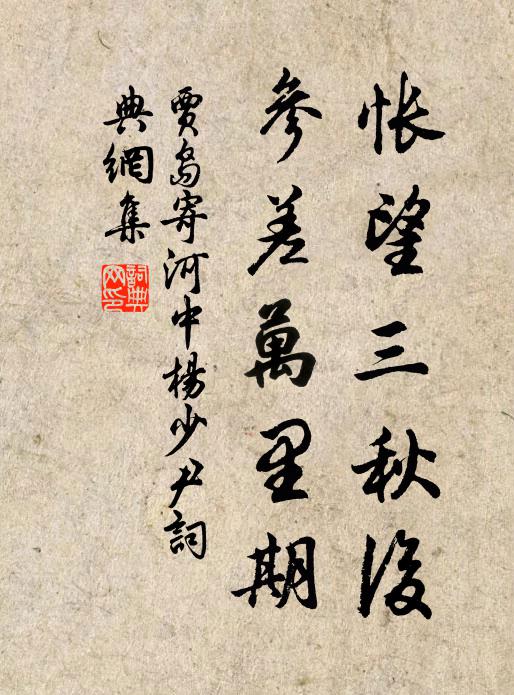 悵望三秋後
參差萬里期
賈島寄河中楊少尹詞
典網集
詞典
網印